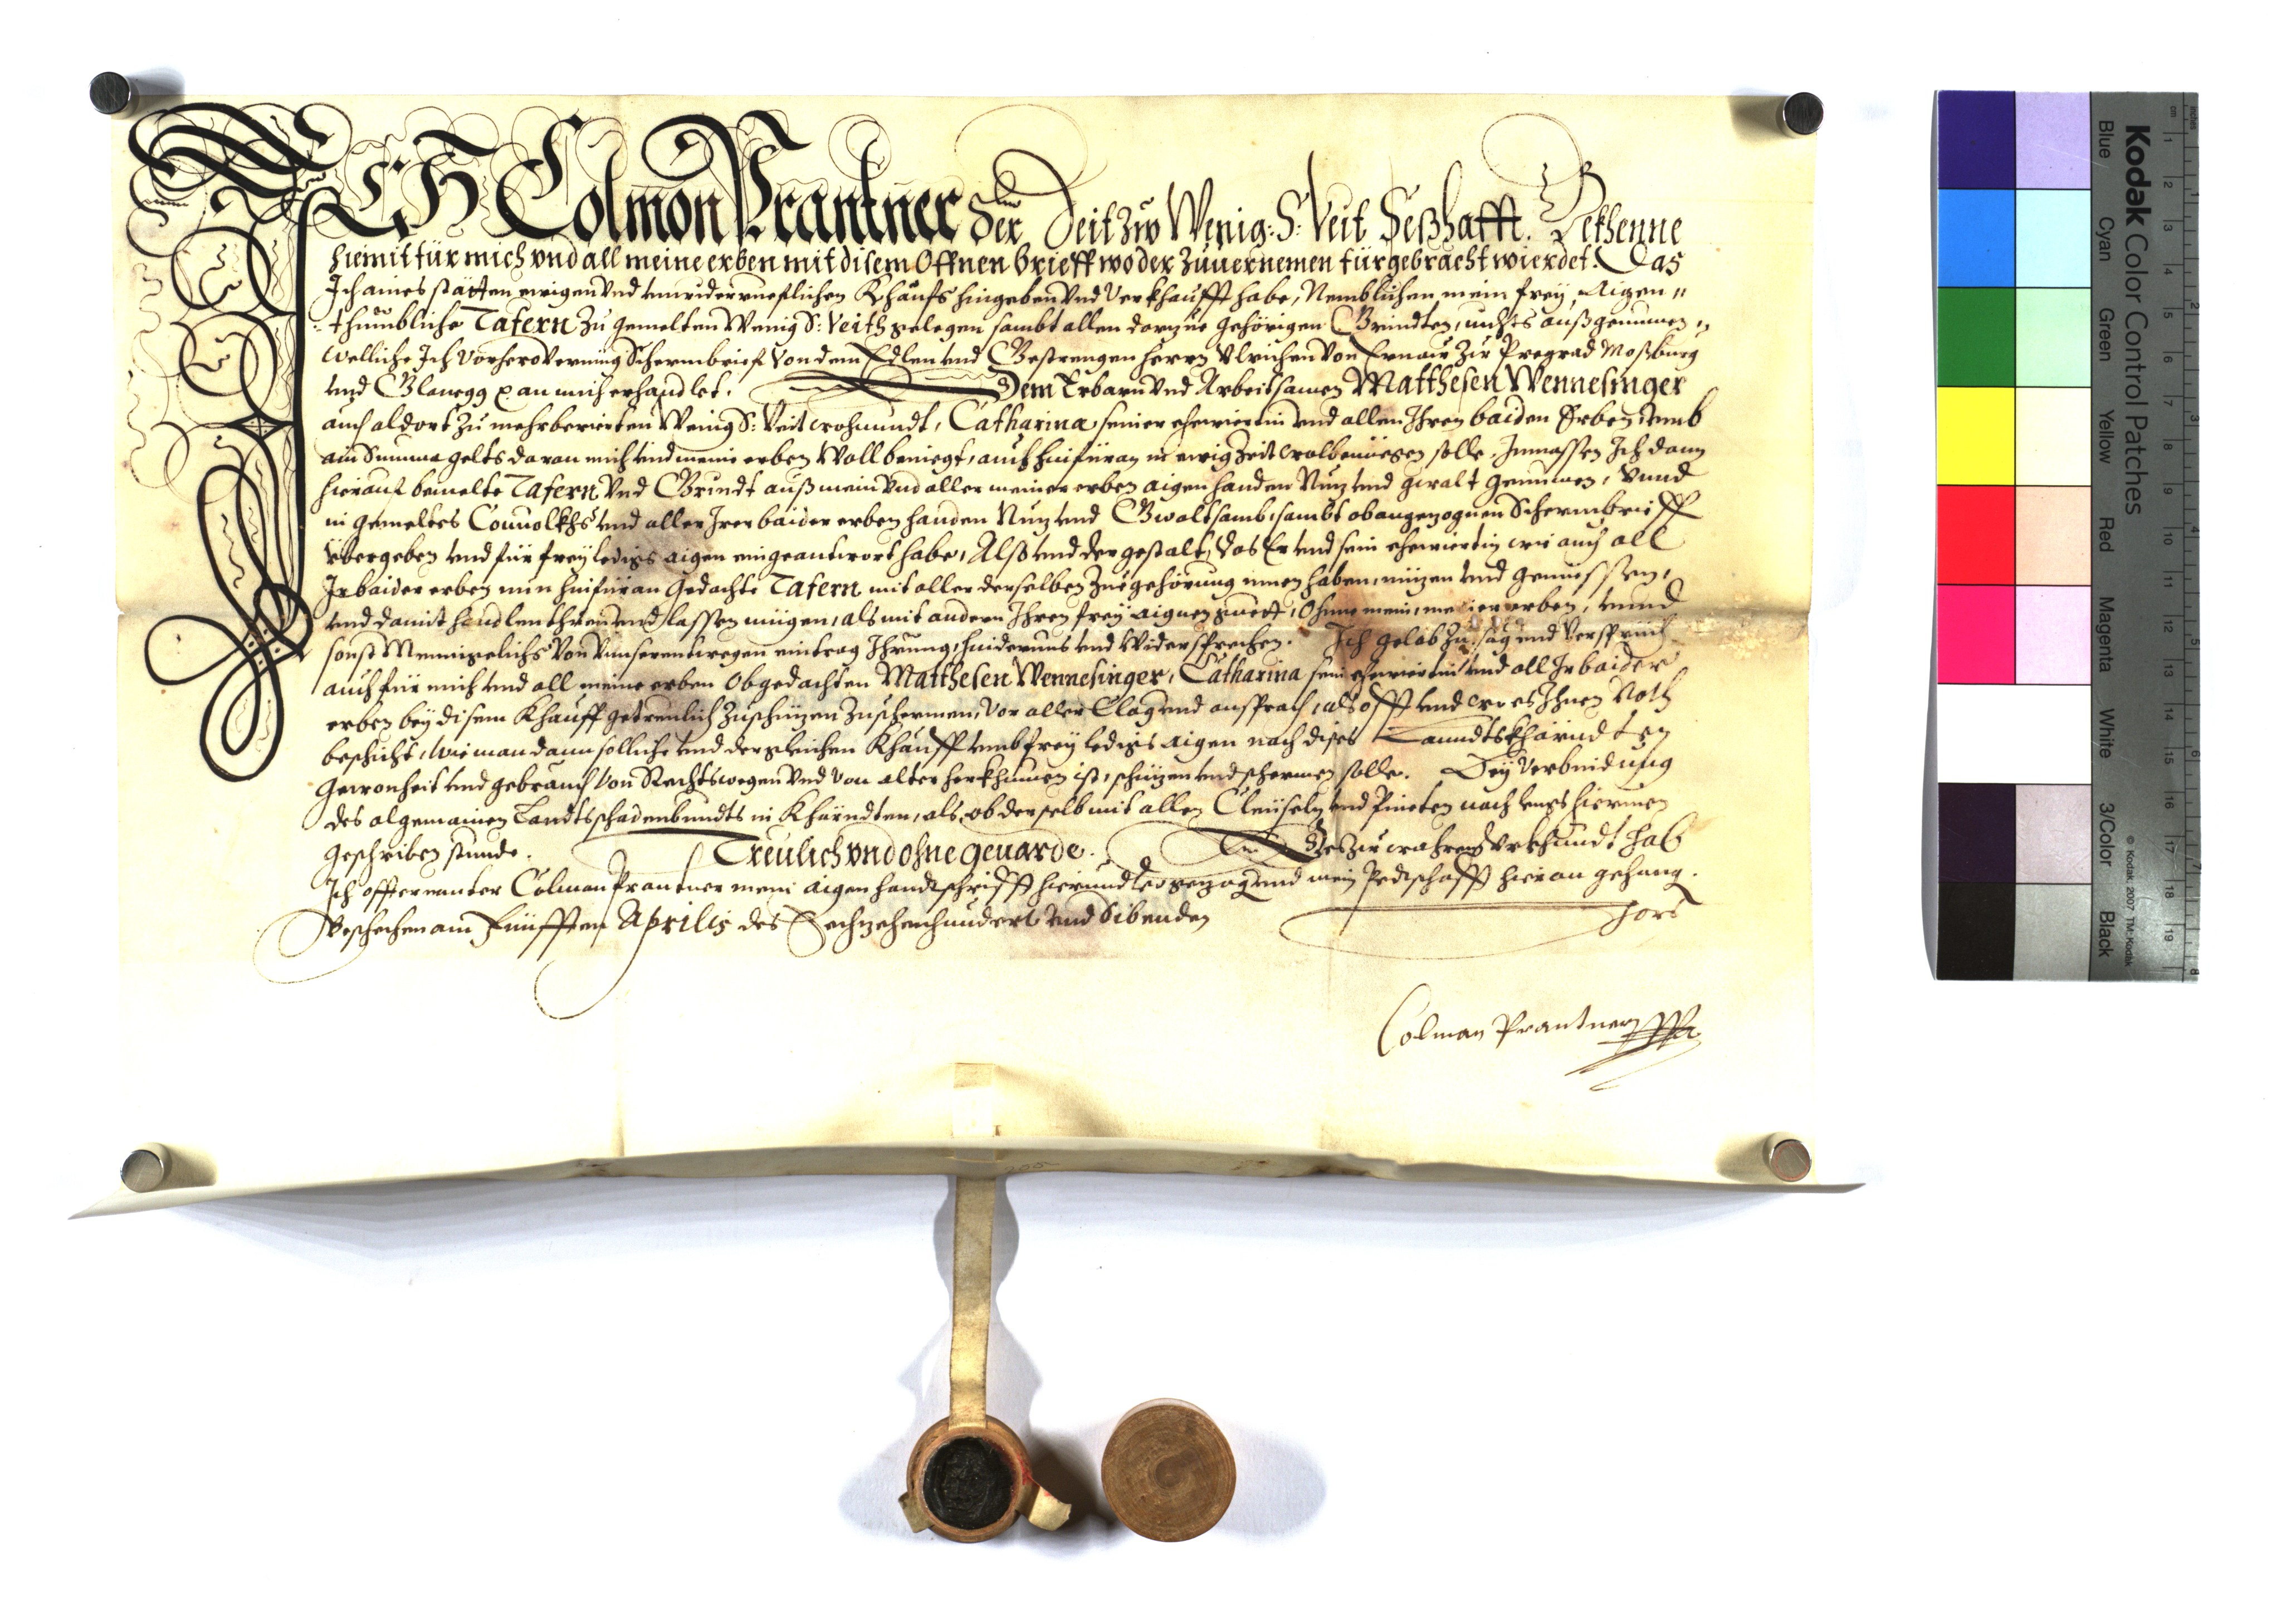 ICH Colmon Prantner der Zeit zw Wenig: S: Veit Seßhafft. Bekhenne
hiemit für mich vnd all meine erben mit disem Offnen brieff wo der zuuernemen fürgebracht wierdet. Das
Ich aines stätten ewigen vnd vnwiderruefflichen Khauffs hingeben vnd Verkhaufft habe, Nemblichen mein frey Aigen"
thumbliche Tafern zu gemelten Wenig S: Veith gelegen sambt allen darzue gehörigen Grindten, nichts außgenumen,
welliche Ich vorhero vermüg Schermbrief von dem Edlen vnd Gestrengen herrn Vlrichen von Ernau zu Pregrad Moßburg
vnd Glanegg an mich erhandlet. Dem Erbarn vnd Arbeitsamen Matthesen Wennesinger
auch aldort zu mehrberierten Wenig S: Veit wohnundt, Catharina seiner ehewiertin vnd allen Ihren baiden Erben vmb
ain Summa gelts daran mich vnd meine erben Woll beniegt, auch hinfüran in ewig Zeit wolbeniegen solle, Inmassen Ich dann
hierauf bemelte Tafern vnd Grundt auß mein vnd aller meiner erben aigen handen Nuz vnd gwalt genumen, vnnd
in gemeltes Conuolkhs vnd aller Irer baider erben handen Nuz vnd Gwaltsamb, sambt obangezognen Schermbrieff
Übergeben vnd für frey ledigs aigen eingeantwort habe, Alß vnd der gestalt, das Er vnd sein ehewiertin wie auch all
Ir baider erben nun hinfüran gedachte Tafern mit aller derselben zuegehörung innen haben, nuzen vnd geniessen,
vnd damit handlen thuen vnd lassen mügen, als mit andern Ihren frey aignen guett, Ohne mein, meiner erben, vnnd
sonst Mennigelichs von vnnserentwegen eintrag Ihrung, hinderuns vnd Widersprechen. Ich gelob zusag vnd Versprich
auch für mich vnd all meine erben Obgedachten Matthesen Wennesinger, Catharina sein ehewiertin vnd all Ir baider
erben bey disem Khauff getreulich zuschüzen zuschermen, vor aller Clag vnd ansprach, als offt vnd wo es Ihnen Noth
beschicht, wie man dann solliche vnd dergleichen Khauff vmb frey ledigs aigen nach dises Lanndts Khärndten
Gewonheit vnd gebrauch von Rechtswegen vnd von alter herkhumen ist, schüzen vnd schermen solle. Bey Verbindung
des algemainen Landtsschadenbundts in Khärndten, als ob derselb mit allen Clauseln vnd Puncten nach lengs hierinen
geschriben stunde. Treulich vnd ohne geuarde. Des zu wahrem Vrkhundt hab
Ich offternanter Colman Prantner mein aigen handtschrifft hierundter gezogen vnd mein Pedtschafft hieran gehang.
Beschehen am Fünfften Aprilis des Sechzehenhundert vnd Sibenden Jars
Colman Prantner
Kodak Color Control Patches
Blue Cyan Green Yellow Red Magenta White 3/Color Black
© Kodak, 2007 TM: Kodak
inches 1 2 3 4 5 6 7 8
cm 1 2 3 4 5 6 7 8 9 10 11 12 13 14 15 16 17 18 19